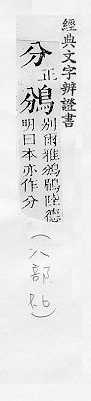 經典文字辨證書
分正
鳻別爾雅鳻鶞陸德
明曰本亦作分
(八部